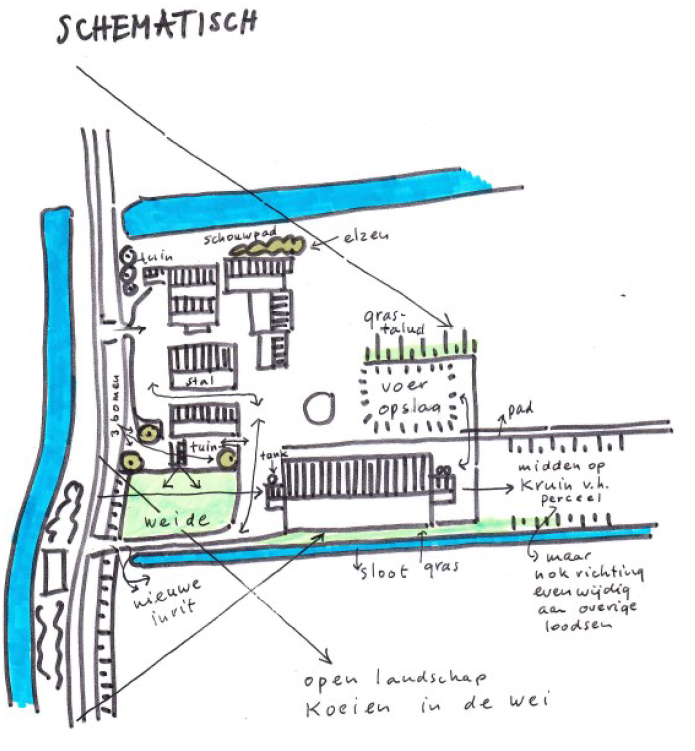 SCHEMATISCH
schouwpad
elzen
tuin
gras-
talud
stal
voer
opslag
3 bomen
pad
tuin
tank
midden op
kruin v.h.
perceel
weide
sloot
gras
maar
nokrichting
evenwijdig
aan overige
loodsen
nieuwe
inrit
open landschap
Koeien in de wei